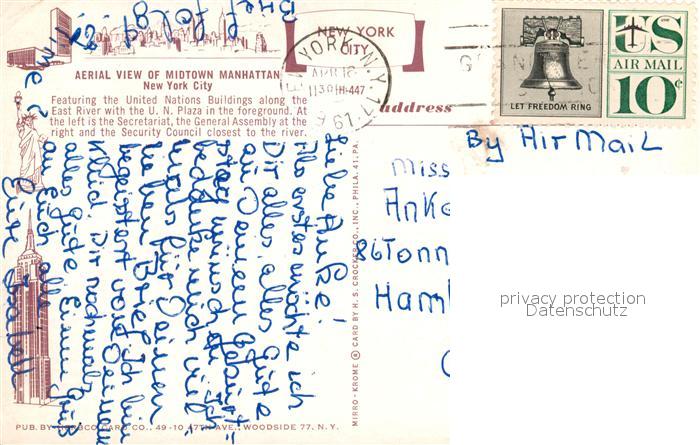 NEW YORK
CITY
NEW YORK, N.Y.
APR 18
1961
US
AIR MAIL
10¢
LET FREEDOM RING
AERIAL VIEW OF MIDTOWN MANHATTAN
New York City
Featuring the United Nations Buildings along the
East River with the U. N. Plaza in the foreground. At
the left is the Secretariat, the General Assembly at the
right and the Security Council closest to the river.
address
By Air Mail
Miss
Anke
Ham
Brief folgt!
Liebe Anke!
Als erstes möchte ich
Dir alles, alles Gute
zu Deinem Geburts-
tag wünschen.
bedanke mich viel-
mals für Deinen
lieben Brief. Ich bin
begeistert von Deinem
Kleid. Dir nochmals
alles Gute einen Gruß
an Euch alle
Eure
MIRRO-KROME ® CARD BY H. S. CROCKER CO., INC., PHILA. 41, PA.
PUB. BY CARD CO., 49-10 47TH AVE., WOODSIDE 77, N. Y.
privacy protection
Datenschutz